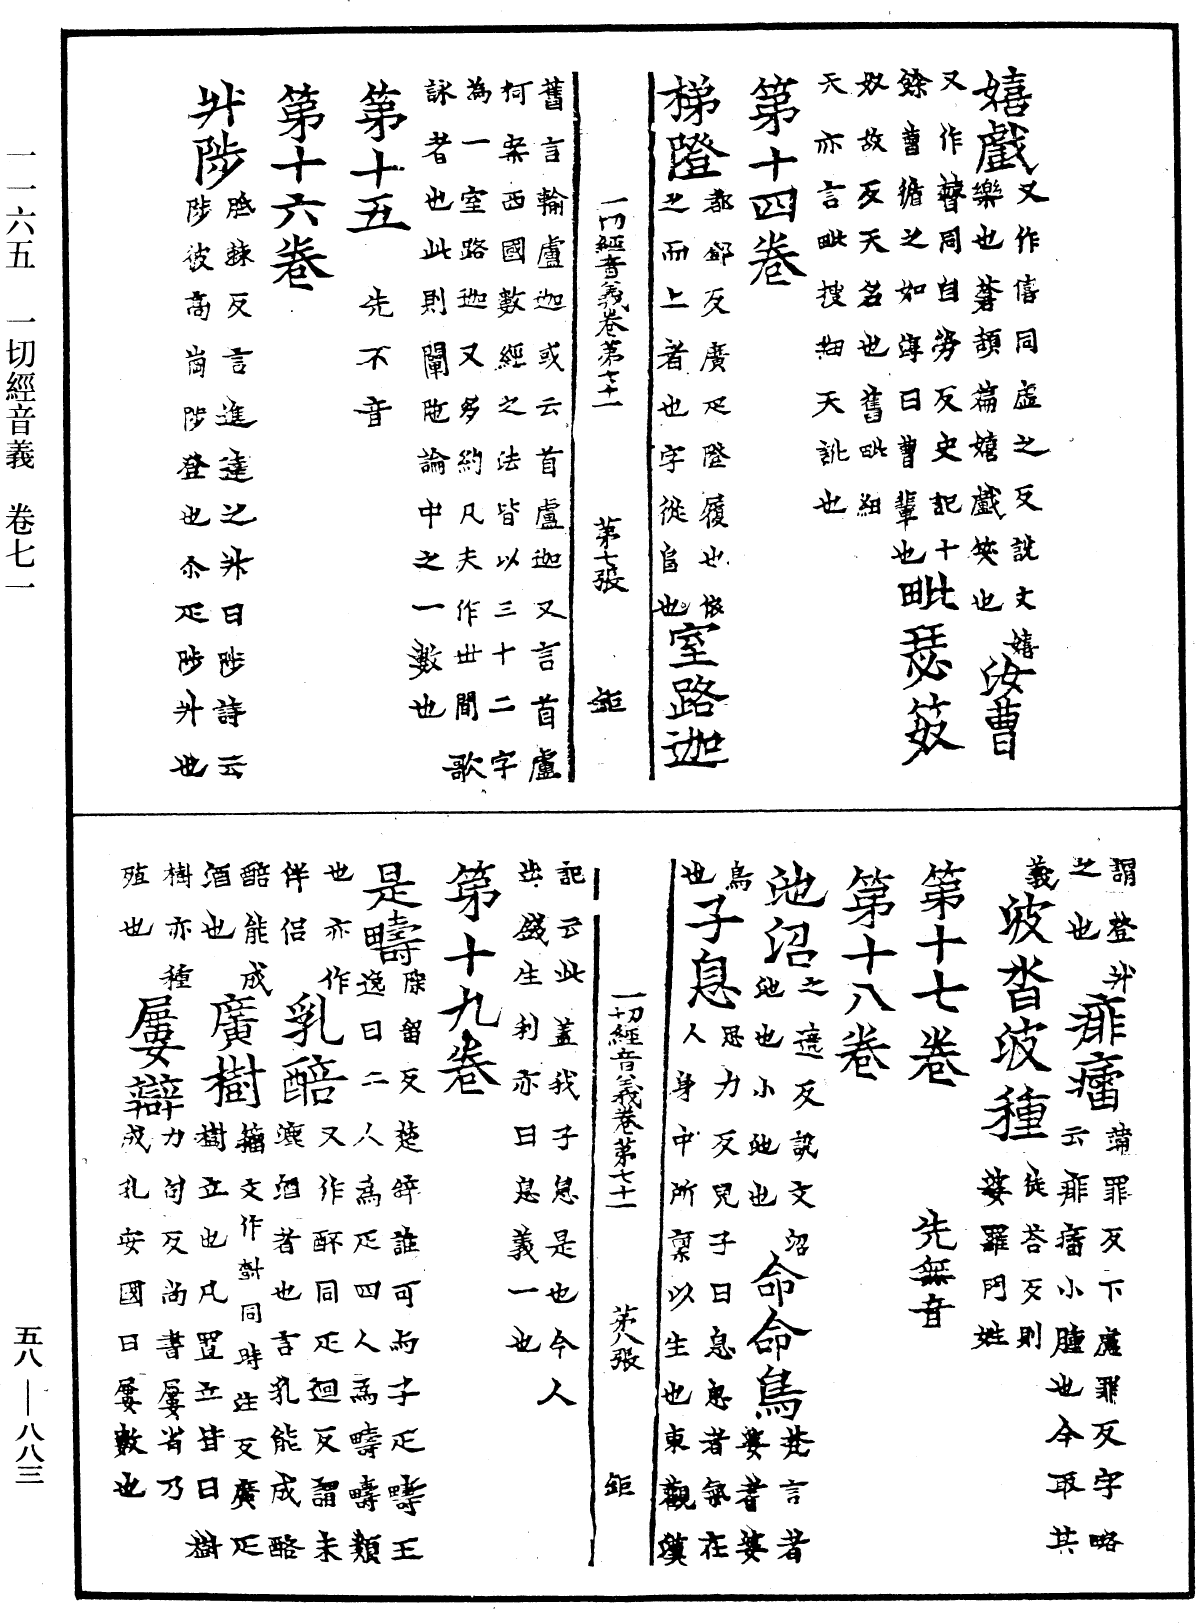 一一六五　一切經音義　卷七一
嬉戲又作僖同虛之反說文嬉樂也蒼頡篇嬉戲笑也汝曹
又作𣍘同自勞反史記十餘曹循之如淳曰曹輩也毗瑟笯
奴故反天名也舊毗紐天亦言毗搜紐天訛也
第十四卷
梯隥都鄧反廣疋隥履也依之而上者也字從𨸏也室路迦
舊言輸盧迦或云首盧迦又言首盧
柯案西國數經之法皆以三十二字
為一室路迦又多約凡夫作世間歌
詠者也此則闡陁論中之一數也
第十五　先不音
第十六卷
升陟胝棘反言進達之升曰陟詩云陟彼高崗陟登也尒疋陟升也
一切經音義卷第七十一　第七張　鉅
謂登升之也痱㿔蒲罪反下盧罪反字略云痱㿔小腫也今取其義
波沓波種徒荅反則婆羅門姓
第十七卷　先無音
第十八卷
池沼之遶反說文沼池也小池也命命鳥梵言耆婆耆婆鳥也
子息思力反兒子曰息息者氣在人身中所稟以生也東觀漢
一切經音義卷第七十一　第八張　鉅
記云此蓋我子息是也今人
出盛生利亦曰息義一也
第十九卷
是疇除留反楚辭誰可與子疋疇王逸曰二人為疋四人為疇疇類也亦作伴侶
乳醅又作酥同疋迴反謂未漉酒者也言乳能成酪醅能成酒也
廣樹籀文作尌同時注反廣疋樹立也凡置立皆曰樹樹亦種殖也
屢辯力句反尚書屢省乃成孔安國曰屢數也
五八——八八三